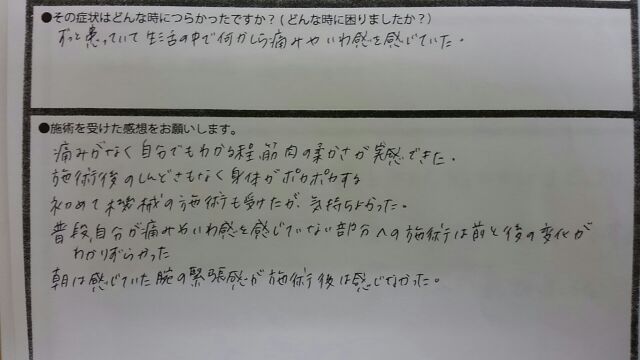 ●その症状はどんな時につらかったですか？(どんな時に困りましたか？)
ずっと患っていて生活の中で何かしら痛みやいわ感を感じていた。
●施術を受けた感想をお願いします。
痛みがなく自分でもわかる程、筋肉の柔かさが実感できた。
施術後のしんどさもなく身体がポカポカする
初めて機械の施術も受けたが、気持ちよかった。
普段、自分が痛みやいわ感を感じていない部分への施術は前と後の変化が
わかりずらかった
朝は感じていた腕の緊張感が施術後は感じなかった。